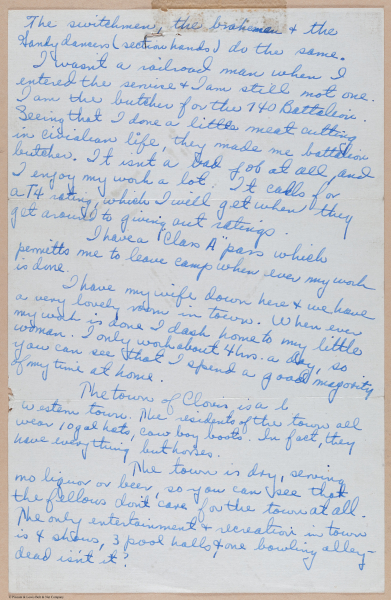 The switchmen, the brakeman & the
Gandy dancers (section hands) do the same.
I wasn't a railroad man when I
entered the service & I am still not one.
I am the butcher for the 740 Battalion.
Seeing that I done a little meat cutting
in civialian life, they made me battalion
butcher. It isnt a bad job at all, and
I enjoy my work a lot. It calls for
a T4 rating, which I will get when they
get around to giving out ratings.
I have a "Class A" pass which
permitts me to leave camp when ever my work
is done.
I have my wife down here & we have
a very lovely room in town. When ever
my work is done I dash home to my little
woman. I only work about 4 hrs. a day, so
you can see that I spend a good magority
of my time at home.
The town of Clovis, is a
western town. The residents of the town all
wear 10 gal hats, cow boy boots. In fact, they
have everything but horses.
The town is dry, serving
no liquor or beer, so you can see that
the fellows don't care for the town at all.
The only entertainment & recreation in town
is 4 shows, 3 pool halls, & one bowling alley-
dead isn't it?